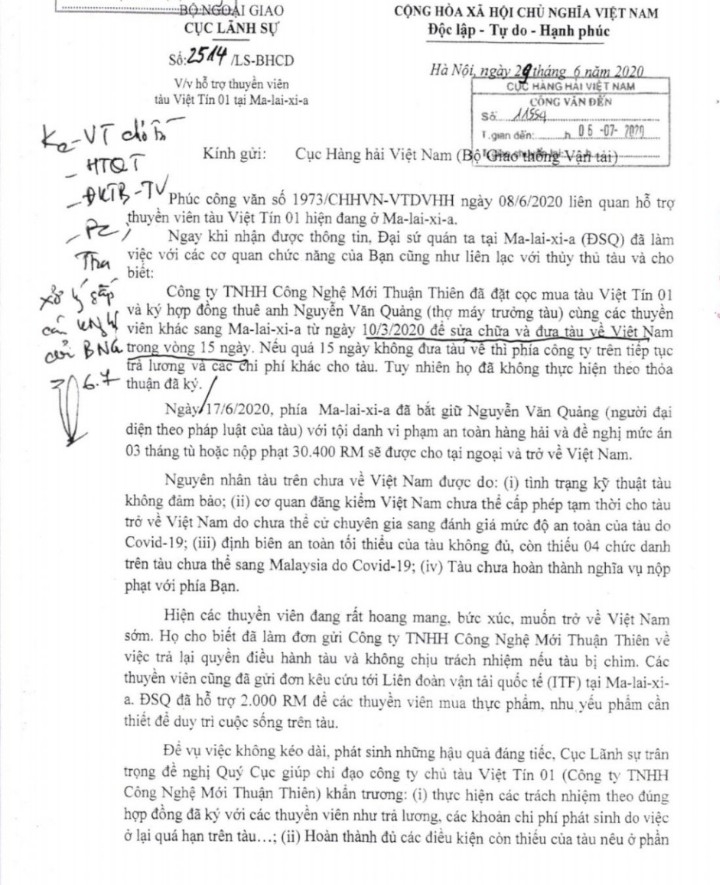 BỘ NGOẠI GIAO
CỤC LÃNH SỰ
Số: 2514 /LS-BHCD
V/v hỗ trợ thuyền viên
tàu Việt Tín 01 tại Ma-lai-xi-a
CỘNG HÒA XÃ HỘI CHỦ NGHĨA VIỆT NAM
Độc lập - Tự do - Hạnh phúc
Hà Nội, ngày 29 tháng 6 năm 2020
CỤC HÀNG HẢI VIỆT NAM
CÔNG VĂN ĐẾN
Số 11554
T.gian đến: h 06-07-2020
Kính gửi: Cục Hàng hải Việt Nam (Bộ Giao thông Vận tải)
- HTQT
- ĐKTB-TV
- PC,
Phúc công văn số 1973/CHHVN-VTDVHH ngày 08/6/2020 liên quan hỗ trợ
thuyền viên tàu Việt Tín 01 hiện đang ở Ma-lai-xi-a.
Ngay khi nhận được thông tin, Đại sứ quán ta tại Ma-lai-xi-a (ĐSQ) đã làm
việc với các cơ quan chức năng của Bạn cũng như liên lạc với thủy thủ tàu và cho
biết:
Công ty TNHH Công Nghệ Mới Thuận Thiên đã đặt cọc mua tàu Việt Tín 01
và ký hợp đồng thuê anh Nguyễn Văn Quảng (thợ máy trưởng tàu) cùng các thuyền
viên khác sang Ma-lai-xi-a từ ngày 10/3/2020 để sửa chữa và đưa tàu về Việt Nam
trong vòng 15 ngày. Nếu quá 15 ngày không đưa tàu về thì phía công ty trên tiếp tục
trả lương và các chi phí khác cho tàu. Tuy nhiên họ đã không thực hiện theo thỏa
thuận đã ký.
6.7
Ngày 17/6/2020, phía Ma-lai-xi-a đã bắt giữ Nguyễn Văn Quảng (người đại
diện theo pháp luật của tàu) với tội danh vi phạm an toàn hàng hải và đề nghị mức án
03 tháng tù hoặc nộp phạt 30.400 RM sẽ được cho tại ngoại và trở về Việt Nam.
Nguyên nhân tàu trên chưa về Việt Nam được do: (i) tình trạng kỹ thuật tàu
không đảm bảo; (ii) cơ quan đăng kiểm Việt Nam chưa thể cấp phép tạm thời cho tàu
trở về Việt Nam do chưa thể cử chuyên gia sang đánh giá mức độ an toàn của tàu do
Covid-19; (iii) định biên an toàn tối thiểu của tàu không đủ, còn thiếu 04 chức danh
trên tàu chưa thể sang Malaysia do Covid-19; (iv) Tàu chưa hoàn thành nghĩa vụ nộp
phạt với phía Bạn.
Hiện các thuyền viên đang rất hoang mang, bức xúc, muốn trở về Việt Nam
sớm. Họ cho biết đã làm đơn gửi Công ty TNHH Công Nghệ Mới Thuận Thiên về
việc trả lại quyền điều hành tàu và không chịu trách nhiệm nếu tàu bị chìm. Các
thuyền viên cũng đã gửi đơn kêu cứu tới Liên đoàn vận tải quốc tế (ITF) tại Ma-lai-xi-
a. ĐSQ đã hỗ trợ 2.000 RM để các thuyền viên mua thực phẩm, nhu yếu phẩm cần
thiết để duy trì cuộc sống trên tàu.
Để vụ việc không kéo dài, phát sinh những hậu quả đáng tiếc, Cục Lãnh sự trân
trọng đề nghị Quý Cục giúp chỉ đạo công ty chủ tàu Việt Tín 01 (Công ty TNHH
Công Nghệ Mới Thuận Thiên) khẩn trương: (i) thực hiện các trách nhiệm theo đúng
hợp đồng đã ký với các thuyền viên như trả lương, các khoản chi phí phát sinh do việc
ở lại quá hạn trên tàu…; (ii) Hoàn thành đủ các điều kiện còn thiếu của tàu nêu ở phần